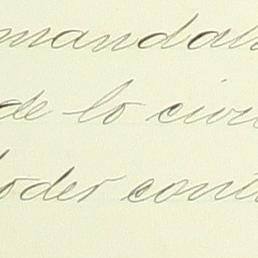 mandat
de lo civi
oder cont